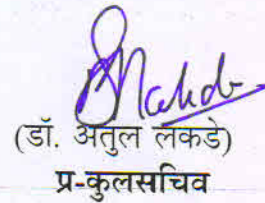 (डॉ. अतुल लकडे)
प्र-कुलसचिव